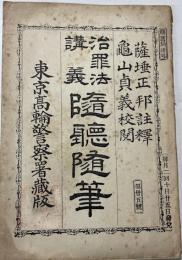 薩埵正邦註釋
龜山貞義校閲
治罪法
講義
隨聽隨筆
東京高輪警察署藏版